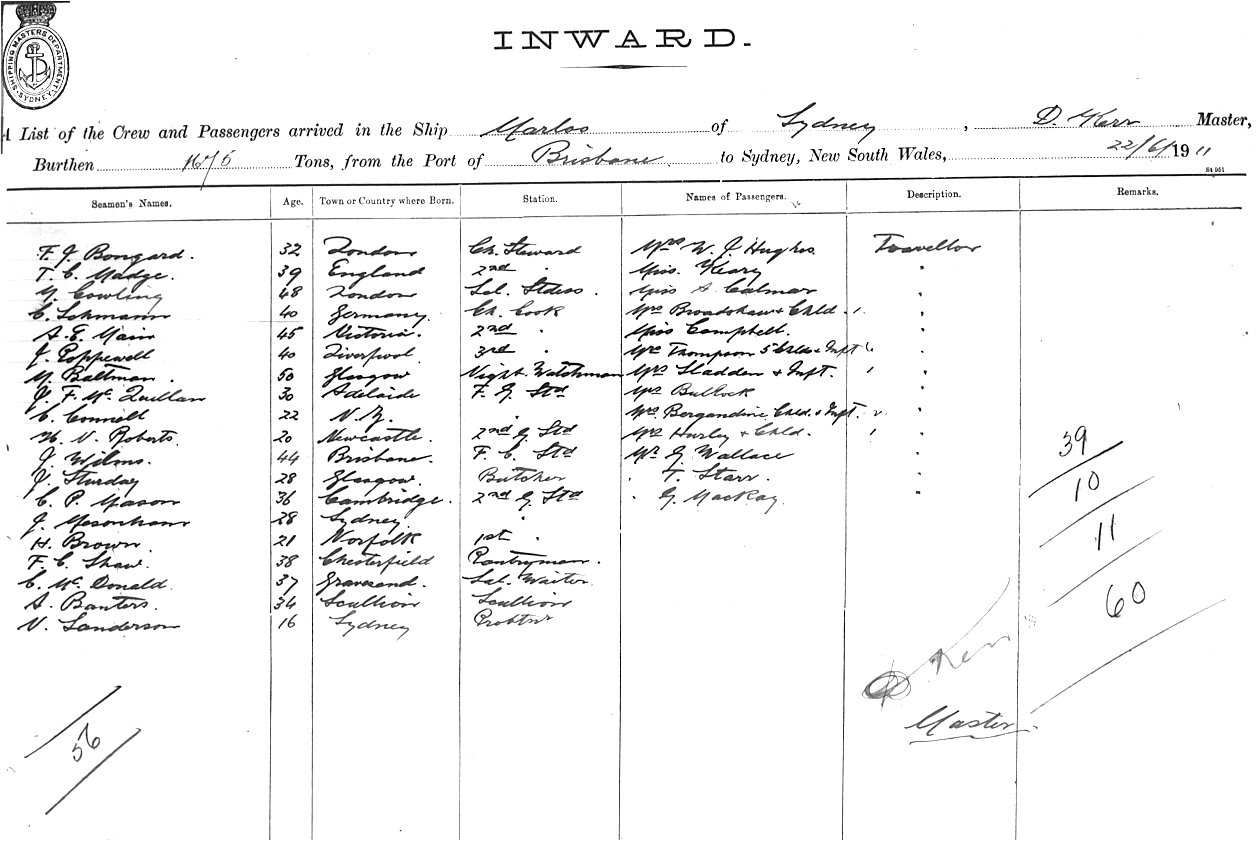 SHIPPING MASTERS DEPARTMENT. SYDNEY.
INWARD.
A List of the Crew and Passengers arrived in the Ship Marloo of Sydney, D. Kerr Master,
Burthen Tons, from the Port of Brisbane to Sydney, New South Wales, 22/6/1911
Seamen's Names. Age. Town or Country where Born. Station. Names of Passengers. Description. Remarks.
F. J. Bongard. 32 London Ch. Steward Mrs W. J. Hughes Traveller
T. C. Madge. 39 England 2nd " Miss. Keary "
M. Cowling 48 London Sal. Stdess. Miss A Calmar "
C. Lohmann 40 Germany. Ch. Cook Mrs Broadshaw + Chld. 1. "
A. E. Main 45 Victoria. 2nd " Miss Campbell. "
J. Poppewell 40 Liverpool 3rd " Mrs Thompson 5 Chld + Inft 6 "
M. Baltman. 50 Glasgow Night Watchman Mrs Sladden + Inft. 1 "
J. F. Mc Quillan 30 Adelaide F. G. Std Mrs Bullock "
C. Connell 22 N. Z. " Mrs Bergandine Chld. + Inft. 2. "
H. V. Roberts. 20 Newcastle. 2nd G. Std Mrs Hurley + Chld. 1 "
J. Wilms. 44 Brisbane. F. C. Std Mr G. Wallace " 39
J. Sturday 28 Glasgow. Butcher " T. Starr. "
C. P. Mason 36 Cambridge. 2nd G. Std " G. MacKay. " 10
J. 28 Sydney. "
H. Brown. 21 Norfolk 1st " 11
F. C. Shaw. 38 Chesterfield Pantryman.
C. Mc Donald. 37 Gravesend. Sal. Waiter.
A. Banters. 34 Scullion Scullion 60
V. Sanderson 16 Sydney
D Kerr
Master.
56